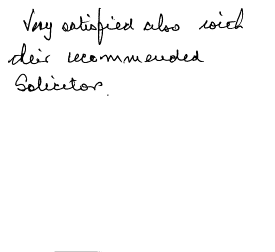 Very satisfied also with
their recommended
Solicitor.